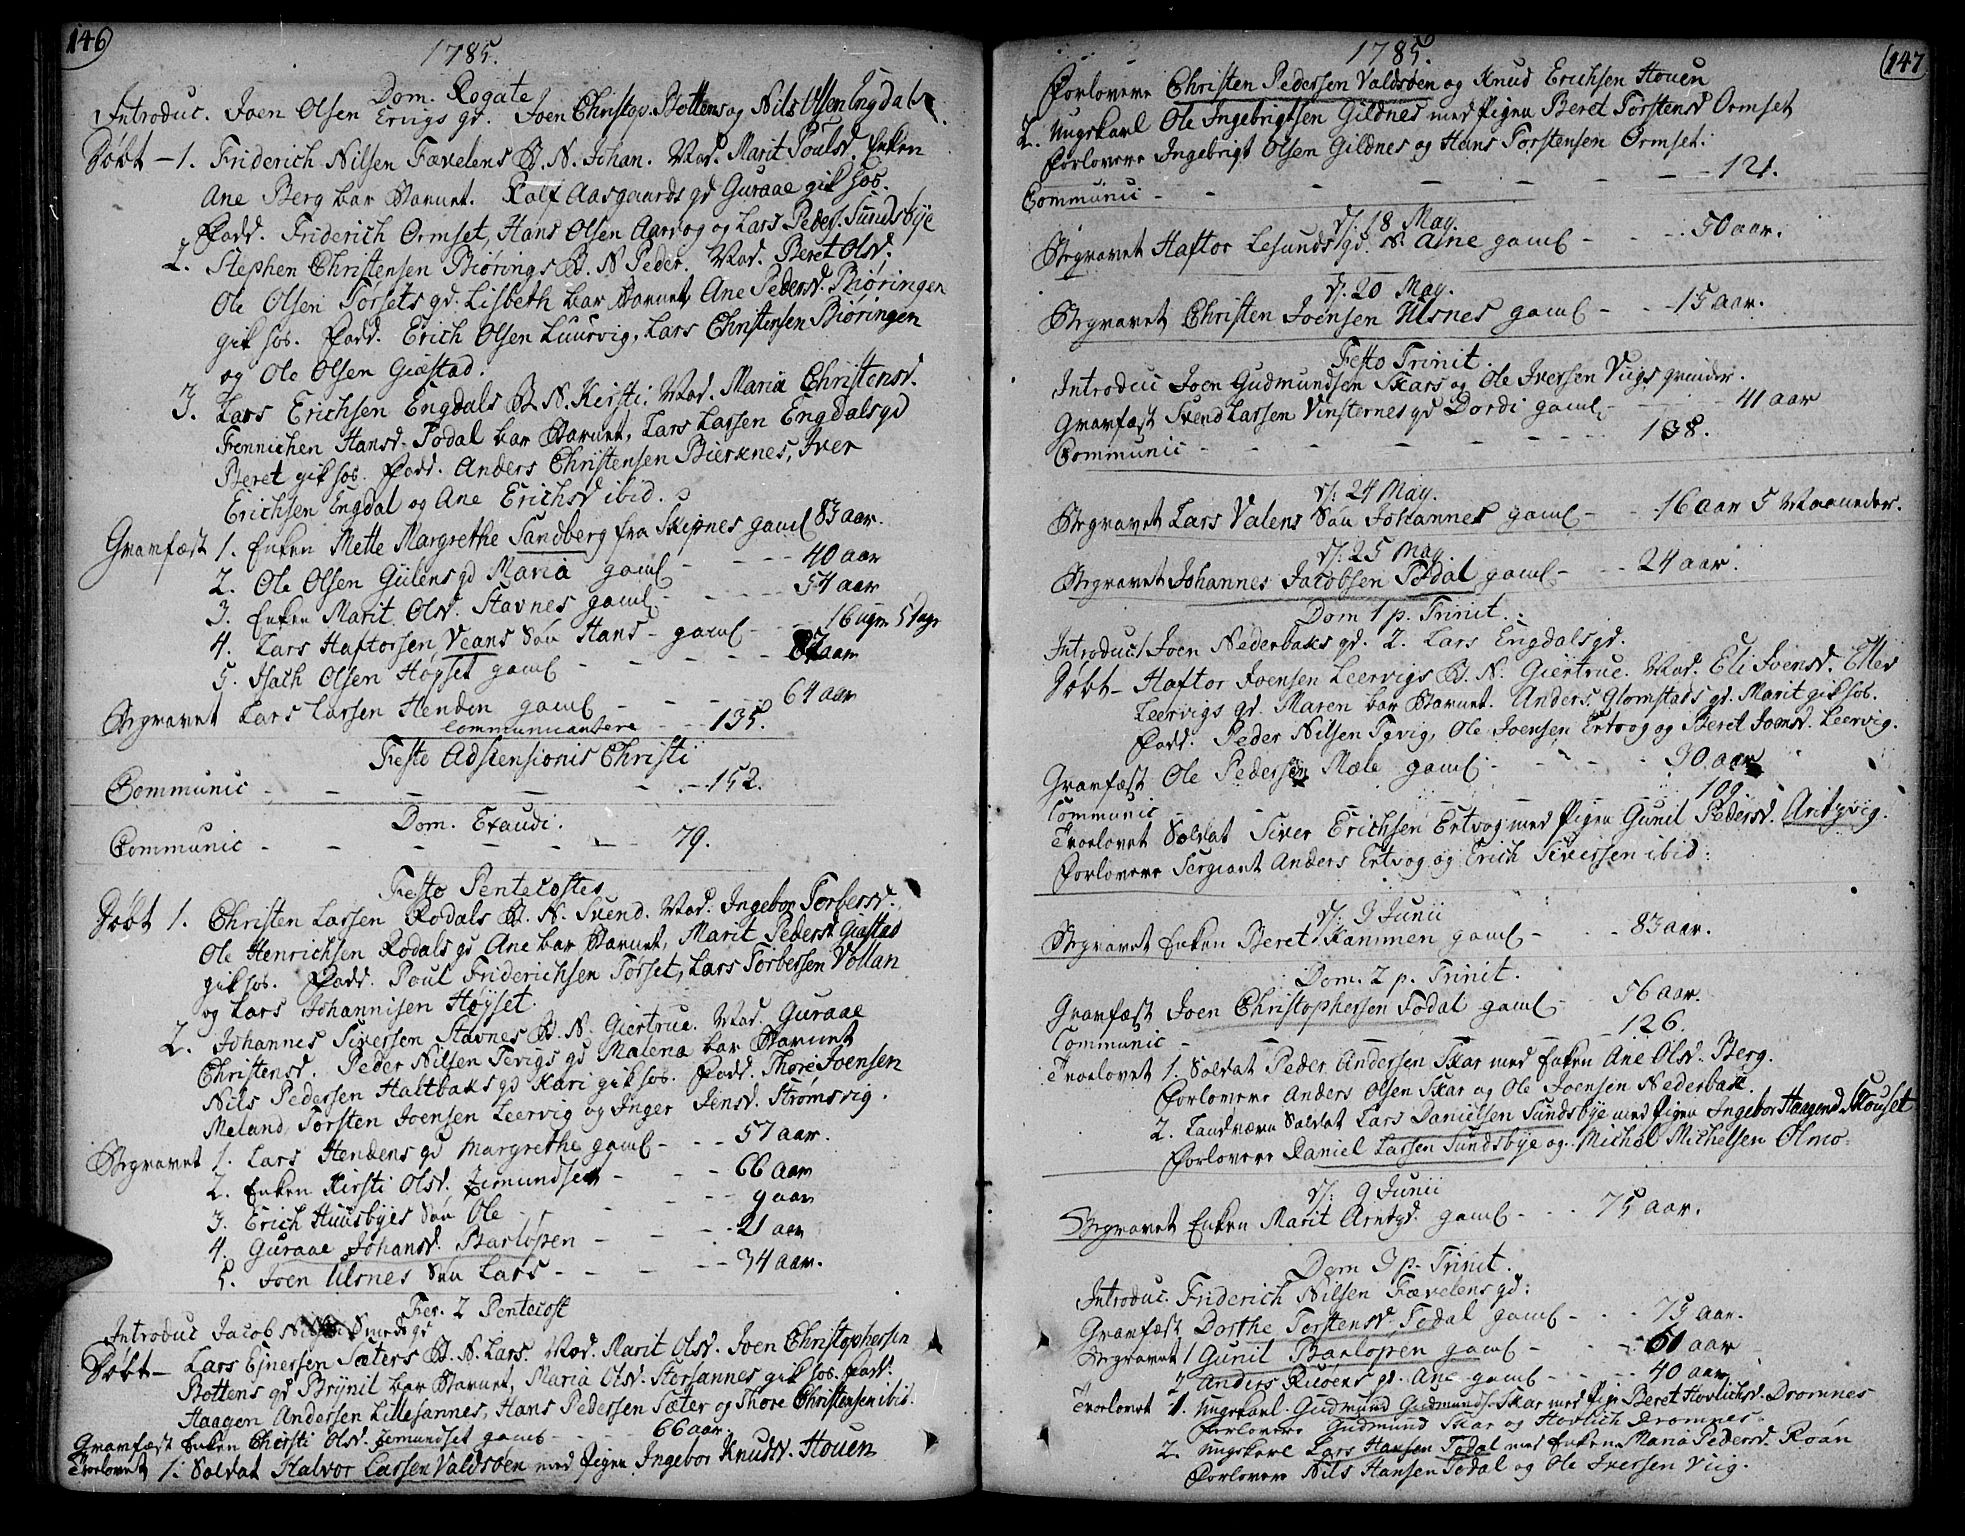 146
1785.
Dom. Rogate
Introduc. Joen Olsen Ervigs gd. Joen Christop. Bottens og Nils Olsen Engdals
Døbt - 1. Friderich Nilsen Fævelens B. N. Johan. Mod. Marit Poulsd. Enken
Ane Berg bar Barnet. Ralf Aasgaards gd Guraae gik hos.
Fadd. Friderich Ormset, Hans Olsen Aarvog og Lars Peders. Sundsbye
2. Stephen Christensen Biørings B. N. Peder. Mod. Beret Olsd.
Ole Olsen Torsets gd. Lisbeth bar Barnet, Ane Pedersd. Biøringen
gik hos. Fadd. Erich Olsen Luurvig, Lars Christensen Biøringen
og Ole Olsen Giæstad.
3. Lars Erichsen Engdals B. N. Kirsti. Mod. Maria Christensd.
Frennichen Hansd. Todal bar Barnet, Lars Larsen Engdals gd
Beret gik hos. Fadd. Anders Christensen Bierknes, Iver
Erichsen Engdal og Ane Erichsd ibid.
Gravfæst 1. Enken Mette Margrethe Sandberg fra Skipnes gaml 83 aar.
2. Ole Olsen Gülens gd Maria gaml - 40 aar
3. Enken Marit Olsd. Stavnes gaml - 54 aar
4. Lars Haftorsen Veans Søn Hans - gaml - 16 ugr 5 Dage
5. Isach Olsen Høyset gaml - 82 aar
Begravet Lars Larsen Henden gaml - 64 aar
Communicantere - 135.
Festo Adscensionis Christi
Communic - 152.
Dom. Exaudi.
Communic - 79.
Festo Pentecostes
Døbt 1. Christen Larsen Rodals B. N. Svend. Mod. Ingebor Torbersd.
Ole Henrichsen Rodals gd Ane bar Barnet, Marit Pedersd. Giæstad
gik hos. Fadd. Poul Friderichsen Torset, Lars Torbersen Vollan
og Lars Johannisen Høyset.
2. Johannes Siversen Stavnes B. N. Giertrue. Mod. Guraae
Christensd. Peder Nilsen Tevigs gd Malena bar Barnet
Nils Pedersen Haltbaks gd Kari gik hos. Fadd. Thore Joensen
Meland, Torsten Joensen Leervig og Inger Jensd. Strømsvig.
Begravet 1. Lars Hendens gd Margrethe gaml - 57 aar.
2. Enken Kirsti Olsd. Jemundset - 66 aar
3. Erich Huusbyes Søn Ole - 9 aar
4. Guraae Johansd. Barlopen - 21 aar
5. Joen Ulsnes Søn Lars - 34 aar.
Fer. 2 Pentecost
Introduc Jacob Smeds gd
Døbt - Lars Ejnersen Sæters B. N. Lars. Mod. Marit Olsd. Joen Christophersen
Bottens gd Brynil bar Barnet, Maria Olsd. Storsannes gik hos. Fadd.
Haagen Andersen Lillesannes, Hans Pedersen Sæter og Thore Christensen ibid.
Gravfæst Enken Chirsti Olsd. Jemundset gaml - 66 aar.
Troelovet 1. Soldat Halvor Larsen Valdsøen med Pigen Ingebor Knudsd. Houen
147
1785.
Forlovere Christen Pedersen Valdsøen og Knud Erichsen Houen
2. Ungskarl Ole Ingebrigtsen Gildnes med Pigen Beret Torstensd Ormset
Forlovere Ingebrigt Olsen Gildnes og Hans Torstensen Ormset.
Communic - 121.
d. 18 May.
Begravet Haftor Lesunds gd. N Ane gaml - 50 aar.
d. 20 May.
Begravet Christen Joensen Ulsnes gaml - 15 aar.
Festo Trinit.
Introduc Joen Gudmundsen Skars og Ole Iversen Viigs qvinder.
Gravfæst Svend Larsen Vinsternes gd Dordi gaml - 41 aar
Communic - 138.
d. 24 May.
Begravet Lars Valens Søn Johannes gaml - 16 aar 5 Maaneder.
d. 25 May
Begravet Johannes Jacobsen Todal gaml - 24 aar.
Dom 1 p. Trinit.
Introduc 1 Joen Nederbaks gd. 2. Lars Engdals gd.
Døbt - Haftor Joensen Leervigs B. N. Giertrue. Mod. Eli Joensd. Ellev
Leervigs gd. Maren bar Barnet. Anders Glomstads gd. Marit gik hos.
Fadd. Peder Nilsen Tevig, Ole Joensen Ertvog og Beret Joensd. Leervig.
Gravfæst Ole Pedersen Mæle gaml - 30 aar
Communic - 109.
Troelovet Soldat Siver Erichsen Ertvog med Pigen Gunil Pedersd.
Forlovere Sergiant Anders Ertvog og Erich Siversen ibid.
d. 3 Junii
Begravet Enken Beret Kammen gaml - 83 aar.
Dom. 2 p. Trinit.
Gravfæst Joen Christophersen Todal gaml - 56 aar.
Communic - 126.
Troelovet 1. Soldat Peder Andersen Skar med Enken Ane Olsd. Berg.
Forlovere Anders Olsen Skar og Ole Joensen Nederbak.
2. Landværn Soldat Lars Danielsen Sundsbye med Pigen Ingebor Haagensd. Skouset
Forlovere Daniel Larsen Sundsbye og Michel Michelsen Olmo
d. 9 Junii
Begravet Enken Marit Arntzd. gaml - 75 aar.
Dom 3 p. Trinit.
Introduc. Friderich Nilsen Fævelens gd.
Gravfæst Dorthe Torstensd. Todal gaml - 75 aar.
Begravet 1 Gunil Barlopen gaml - 61 aar
2 Anders Ruøens gd. Ane gaml - 40 aar
Troelovet 1. Ungskarl Gudmund Gudmunds. Skar med Pigen Beret Hovlichsd. Dromnes
Forlovere Gudmund Skar og Hovlich Dromnes.
2. Ungskarl Lars Hansen Todal med Enken Maria Pedersd. Roån
Forlovere Nils Hansen Todal og Ole Iversen Viig.